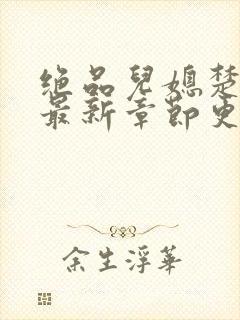 绝品兒媳楚
最新章節更
余生浮華